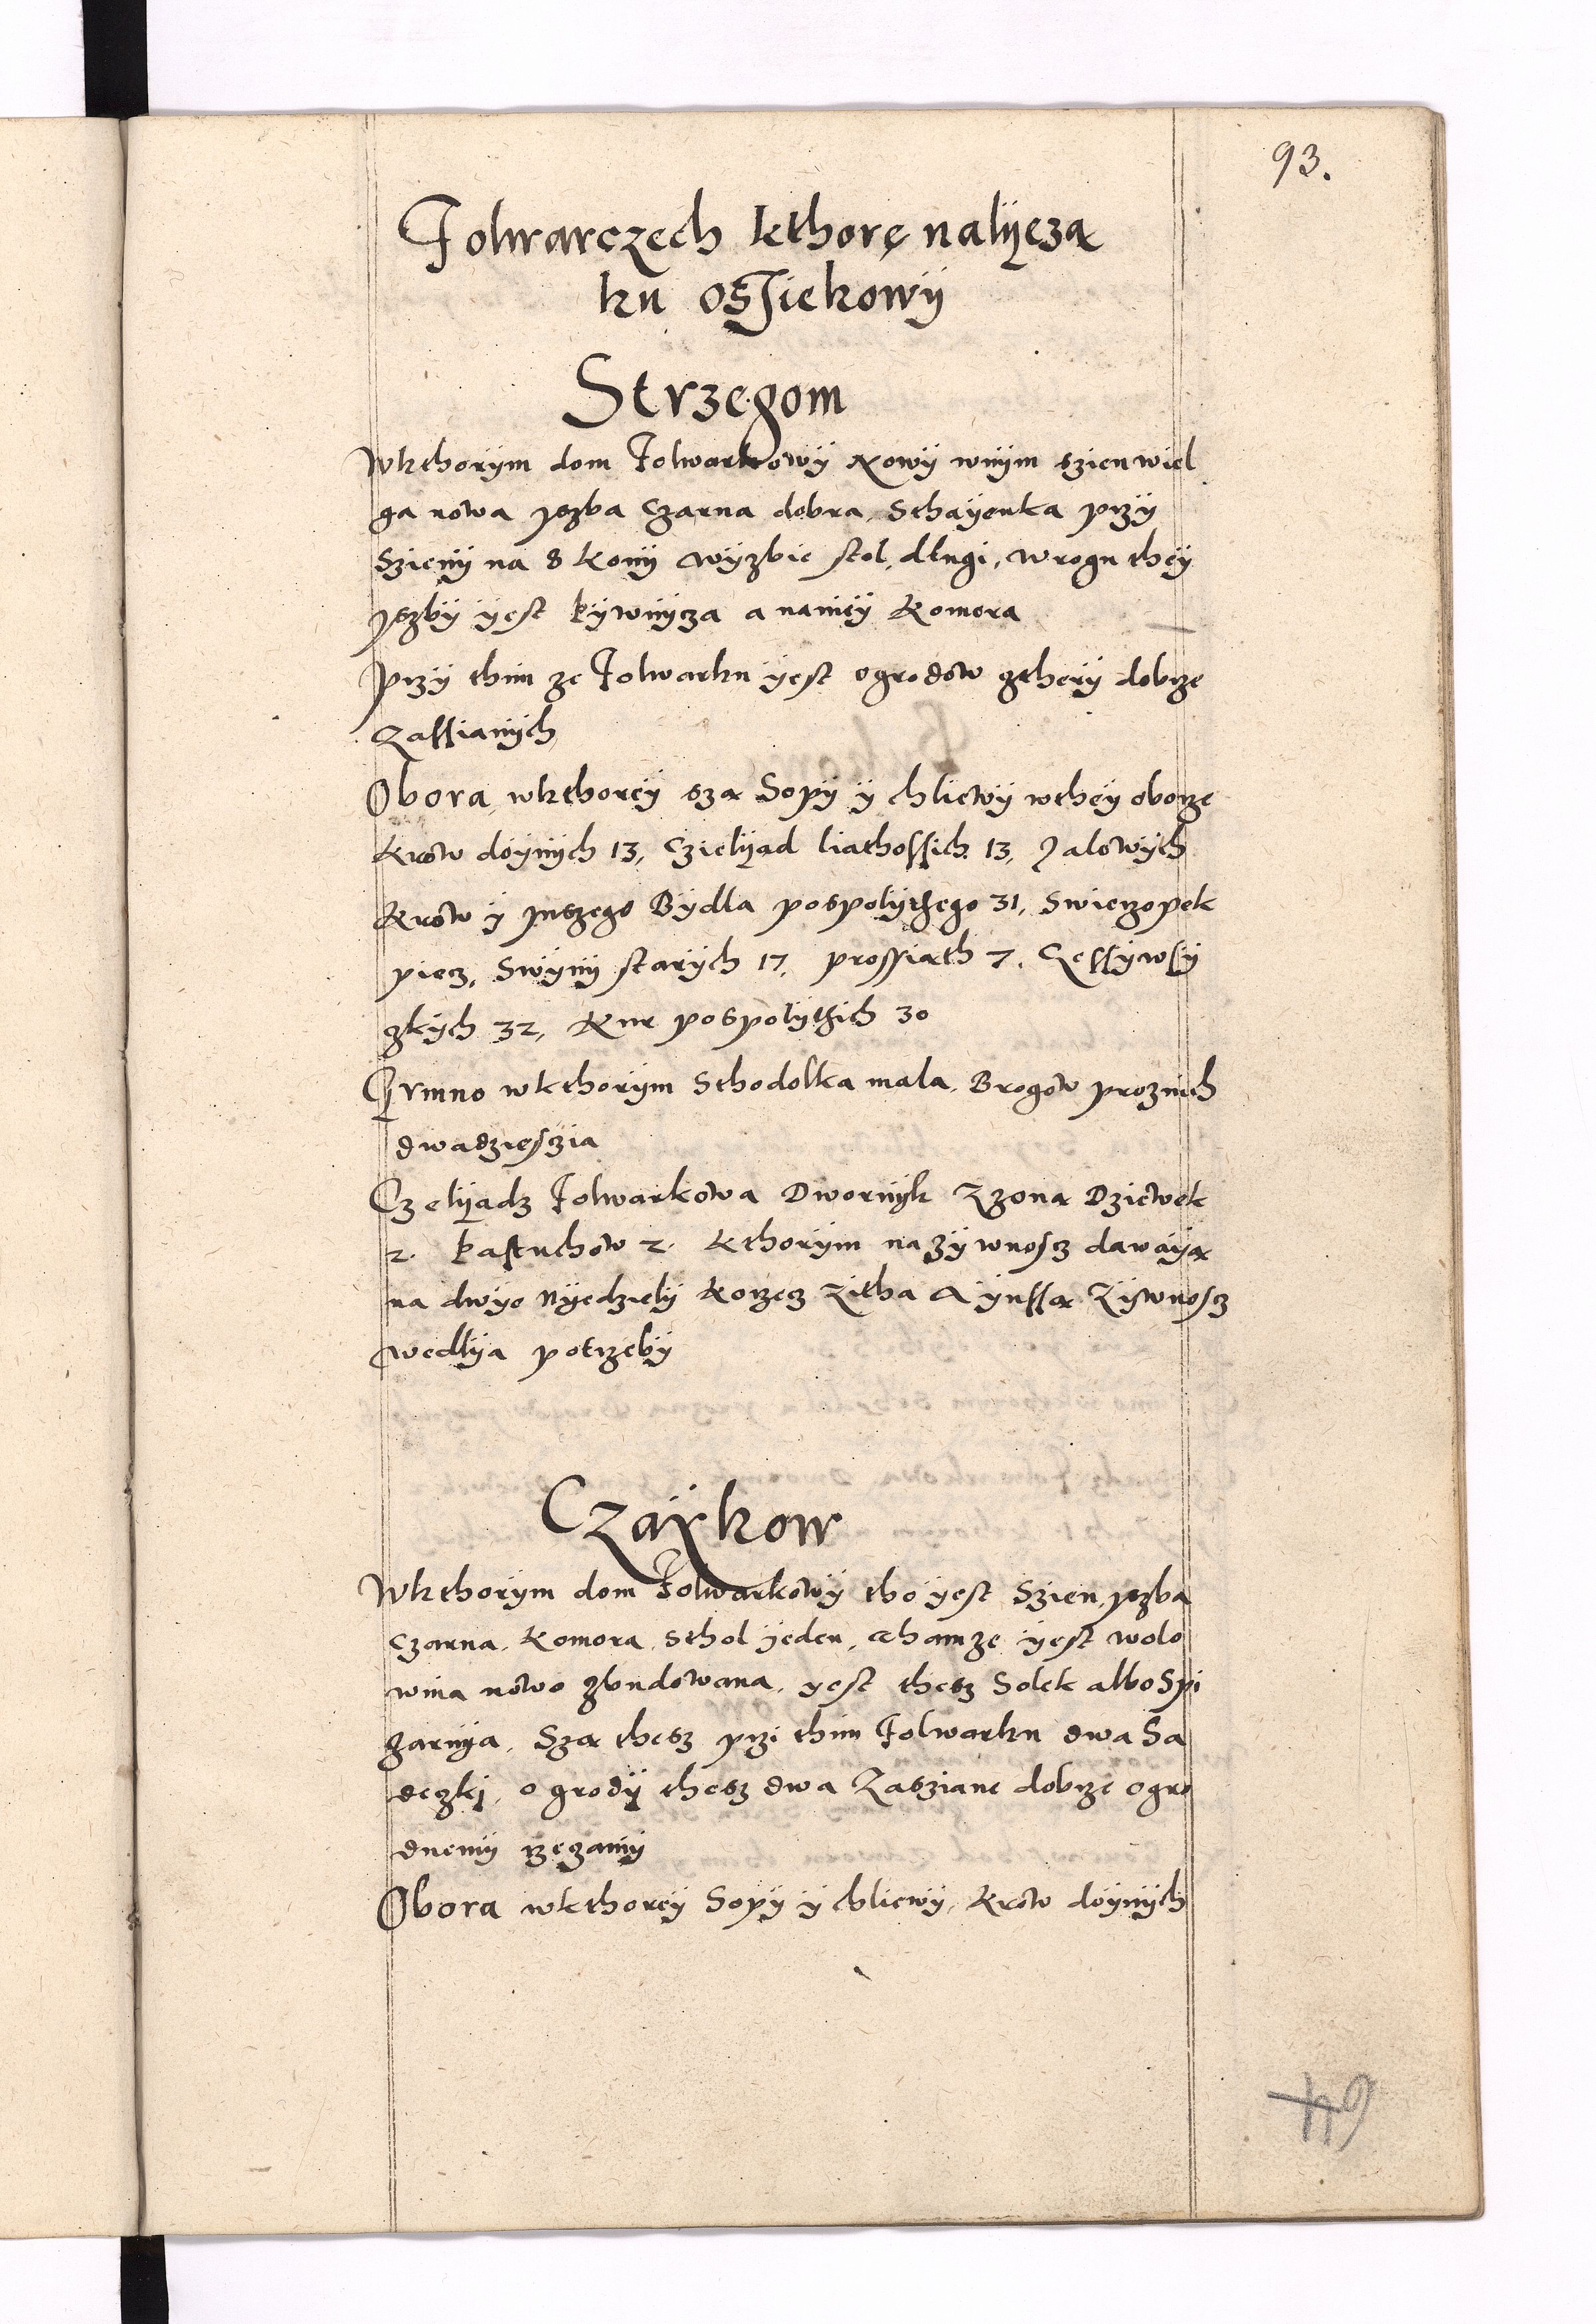 93.
Folwarczech kthorę nalyęza
ku osSiekowÿ
Strzegom
Wkthorÿm dom Folwarkowÿ Nowÿ wnÿm szien wiel
ga nowa yszba Czarna dobra, Sthaÿenka przÿ
Szienÿ na 8 konÿ wÿzbie stol dlugi, wrogu theÿ
yszbÿ ÿest pÿwnÿcza a nanieÿ Komora
przÿ thim ze Folwarku ÿest ogrodow czterÿ dobrze
Zassianÿch
Obora, wkthoreÿ sza Sopÿ ÿ chliewÿ wtheÿ oborze
Krow doÿnÿch 13, Czielyąd liathossich 13, Jalowÿch
Krow ÿ ynszego Bÿdla pospolÿthego 31, Swierzopek
piecz, Swÿnÿ starÿch 17, prossiath 7, Gessÿ wssÿ
zkÿch 32, Kur pospolÿthich 30
Gvmno wkthorÿm Sthodolka mala, Brogow proznich
dwadziesczia
Czelyadz Folwarkowa Dwornÿk Zzoną Dziewek
2. Pastuchow 2. Kthorÿm nazÿwnoscz dawaÿą
na dwÿe Nÿedzielÿ Korzecz Zitha A ÿnssą Zÿwnoscz
wedlÿa potrzebÿ
Czaÿkow
Wkthorÿm dom Folwarkowÿ tho ÿest Szien, yszba
Czarna, Komora, sthol ÿeden, thamze ÿest wolo
wnia nowo zbudowana, ÿest thesz Solek albo Spi
zarnÿa, Szą thesz przi thim Folwarku dwa Sa
deczki, ogrodÿ thesz dwa Zasziane dobrze ogro
dnemÿ rzeczamÿ
Obora wkthoreÿ Sopÿ ÿ chliewÿ, Krow doÿnÿch
49